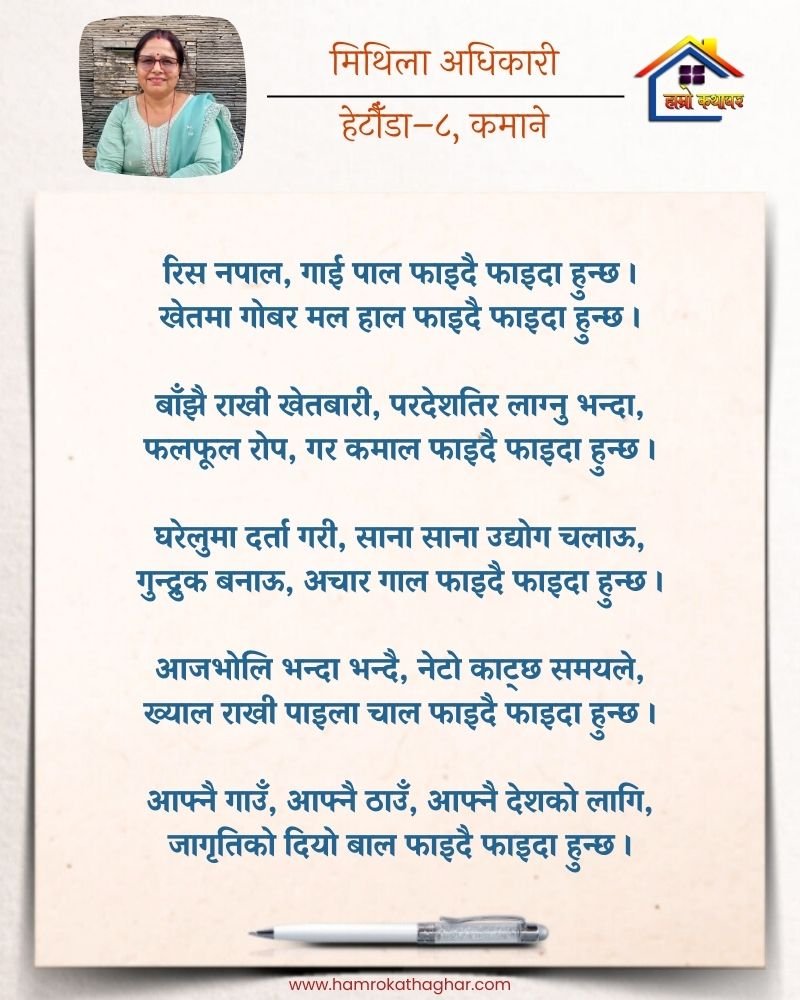 मिथिला अधिकारी
हेटौंडा–८, कमाने
हाम्रो कथाघर
रिस नपाल, गाई पाल फाइदै फाइदा हुन्छ।
खेतमा गोबर मल हाल फाइदै फाइदा हुन्छ।
बाँझै राखी खेतबारी, परदेशतिर लाग्नु भन्दा,
फलफूल रोप, गर कमाल फाइदै फाइदा हुन्छ।
घरेलुमा दर्ता गरी, साना साना उद्योग चलाऊ,
गुन्द्रुक बनाऊ, अचार गाल फाइदै फाइदा हुन्छ।
आजभोलि भन्दा भन्दै, नेटो काट्छ समयले,
ख्याल राखी पाइला चाल फाइदै फाइदा हुन्छ।
आफ्नै गाउँ, आफ्नै ठाउँ, आफ्नै देशको लागि,
जागृतिको दियो बाल फाइदै फाइदा हुन्छ।
www.hamrokathaghar.com